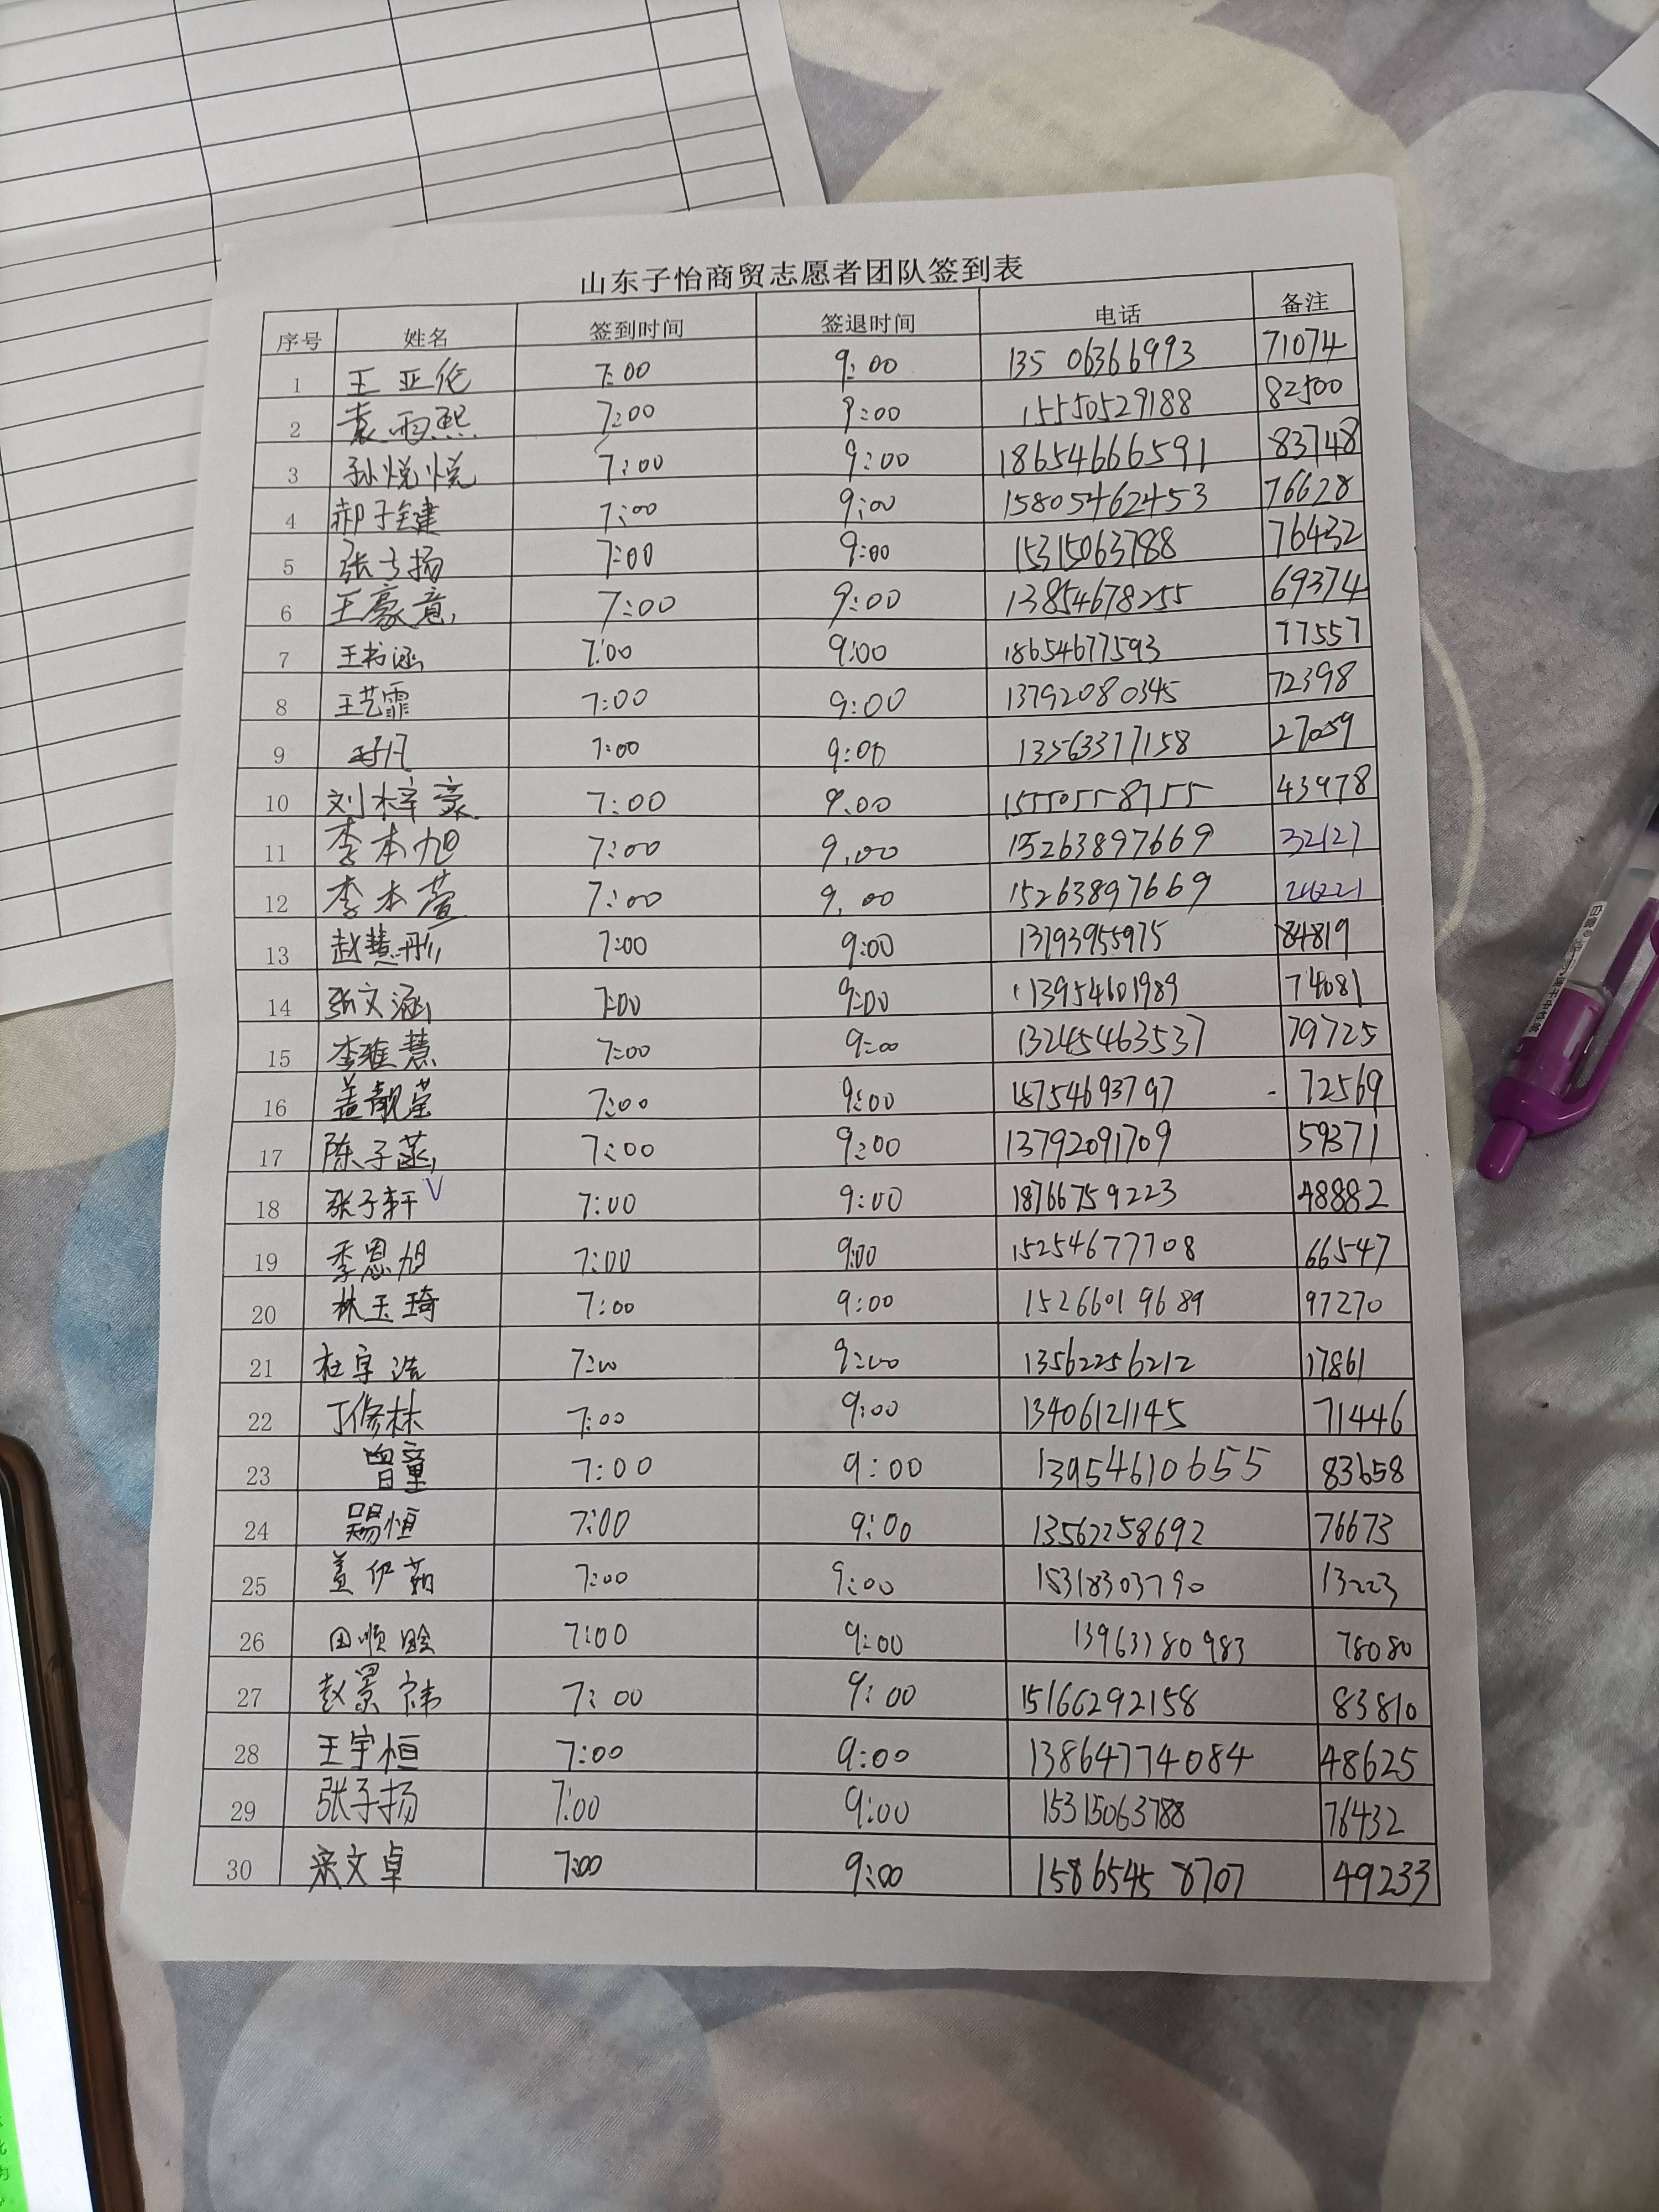 山东子怡商贸志愿者团队签到表
序号 姓名 签到时间 签退时间 电话 备注
1 王亚伦 7:00 9:00 13506366993 71074
2 袁雨熙 7:00 9:00 15550529188 82500
3 孙悦悦 7:00 9:00 18654666591 83748
4 郝子健 7:00 9:00 15805462453 76628
5 张子扬 7:00 9:00 15315063788 76432
6 王豪意 7:00 9:00 13854678255 69374
7 王书涵 7:00 9:00 18654677593 77557
8 王艺霏 7:00 9:00 13792080345 72398
9 7:00 9:00 13563377158 27059
10 刘梓豪 7:00 9:00 15550558755 43978
11 李本旭 7:00 9:00 15263897669 32127
12 李本萱 7:00 9:00 15263897669 26221
13 赵慧彤 7:00 9:00 13793955975 84819
14 张文涵 7:00 9:00 13954601989 74081
15 李雅慧 7:00 9:00 13245463537 79725
16 盖靓莹 7:00 9:00 18754693797 72569
17 陈子菡 7:00 9:00 13792091709 59371
18 张子轩 7:00 9:00 18766759223 48882
19 李恩旭 7:00 9:00 15254677708 66547
20 林玉琦 7:00 9:00 15266019689 97270
21 杜宇浩 7:00 9:00 13562256212 17861
22 丁修林 7:00 9:00 13406121145 71446
23 曾童 7:00 9:00 13954610655 83658
24 7:00 9:00 13562258692 76673
25 盖伊茹 7:00 9:00 15318303790 13223
26 田顺 7:00 9:00 13963780983 78080
27 赵景祎 7:00 9:00 15166292158 83810
28 王宇恒 7:00 9:00 13864774084 48625
29 张子扬 7:00 9:00 15315063788 76432
30 宋文卓 7:00 9:00 15865458707 49233